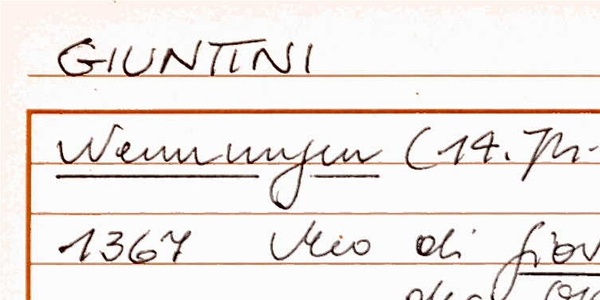 GIUNTINI
Nennungen (14. Jh.
1367 Meo di Giov